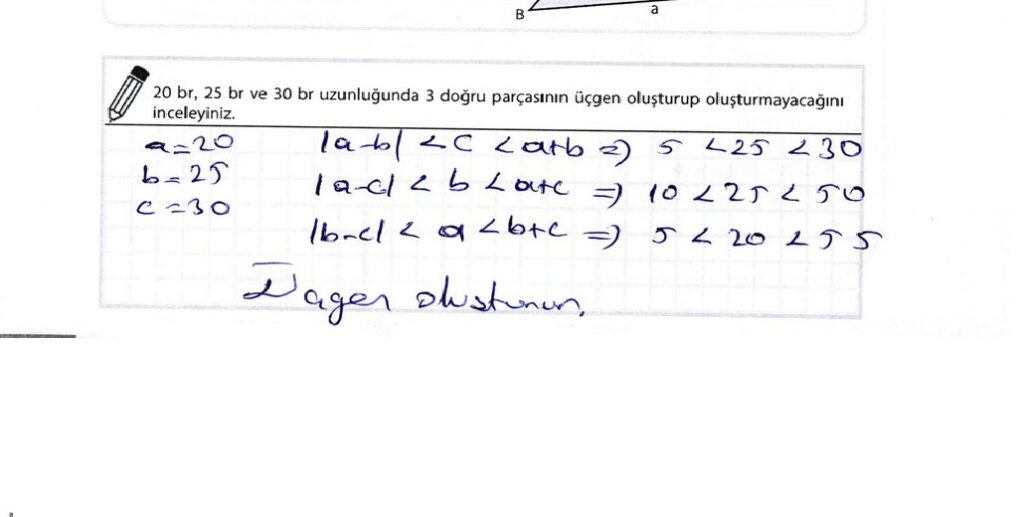 B a
20 br, 25 br ve 30 br uzunluğunda 3 doğru parçasının üçgen oluşturup oluşturmayacağını
inceleyiniz.
a=20 |a-b| < c < a+b => 5 < 25 < 30
b=25 |a-c| < b < a+c => 10 < 25 < 50
c=30 |b-c| < a < b+c => 5 < 20 < 55
oluşturur.